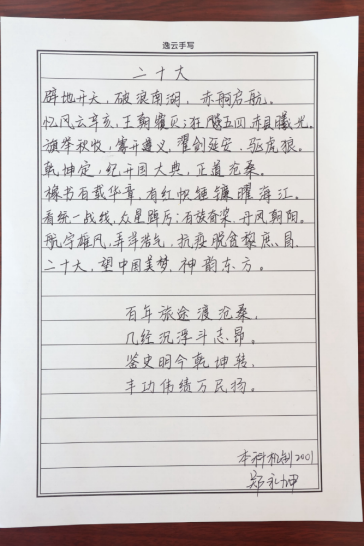 逸云手写
二十大
辟地开天，破浪南湖，赤舸启航。
忆风云辛亥，王朝覆灭；狂飚五四，赤县曦光。
旗举秋收，霧开遵义，濯剑延安，驱虎狼。
乾坤定，纪开国大典，正道沧桑。
椽书百载华章，有红帜锤镰曜海江。
看统一战线，众星踔厉；百族脊梁，丹凤朝阳。
航宇雄风，弄洋浩气，抗疫脱贫黎庶昌。
二十大，望中国美梦，神韵东方。
百年旅途渡沧桑，
几经沉浮斗志昂。
鉴史明今乾坤转，
丰功伟绩万民扬。
本科机制2001
郑永坤